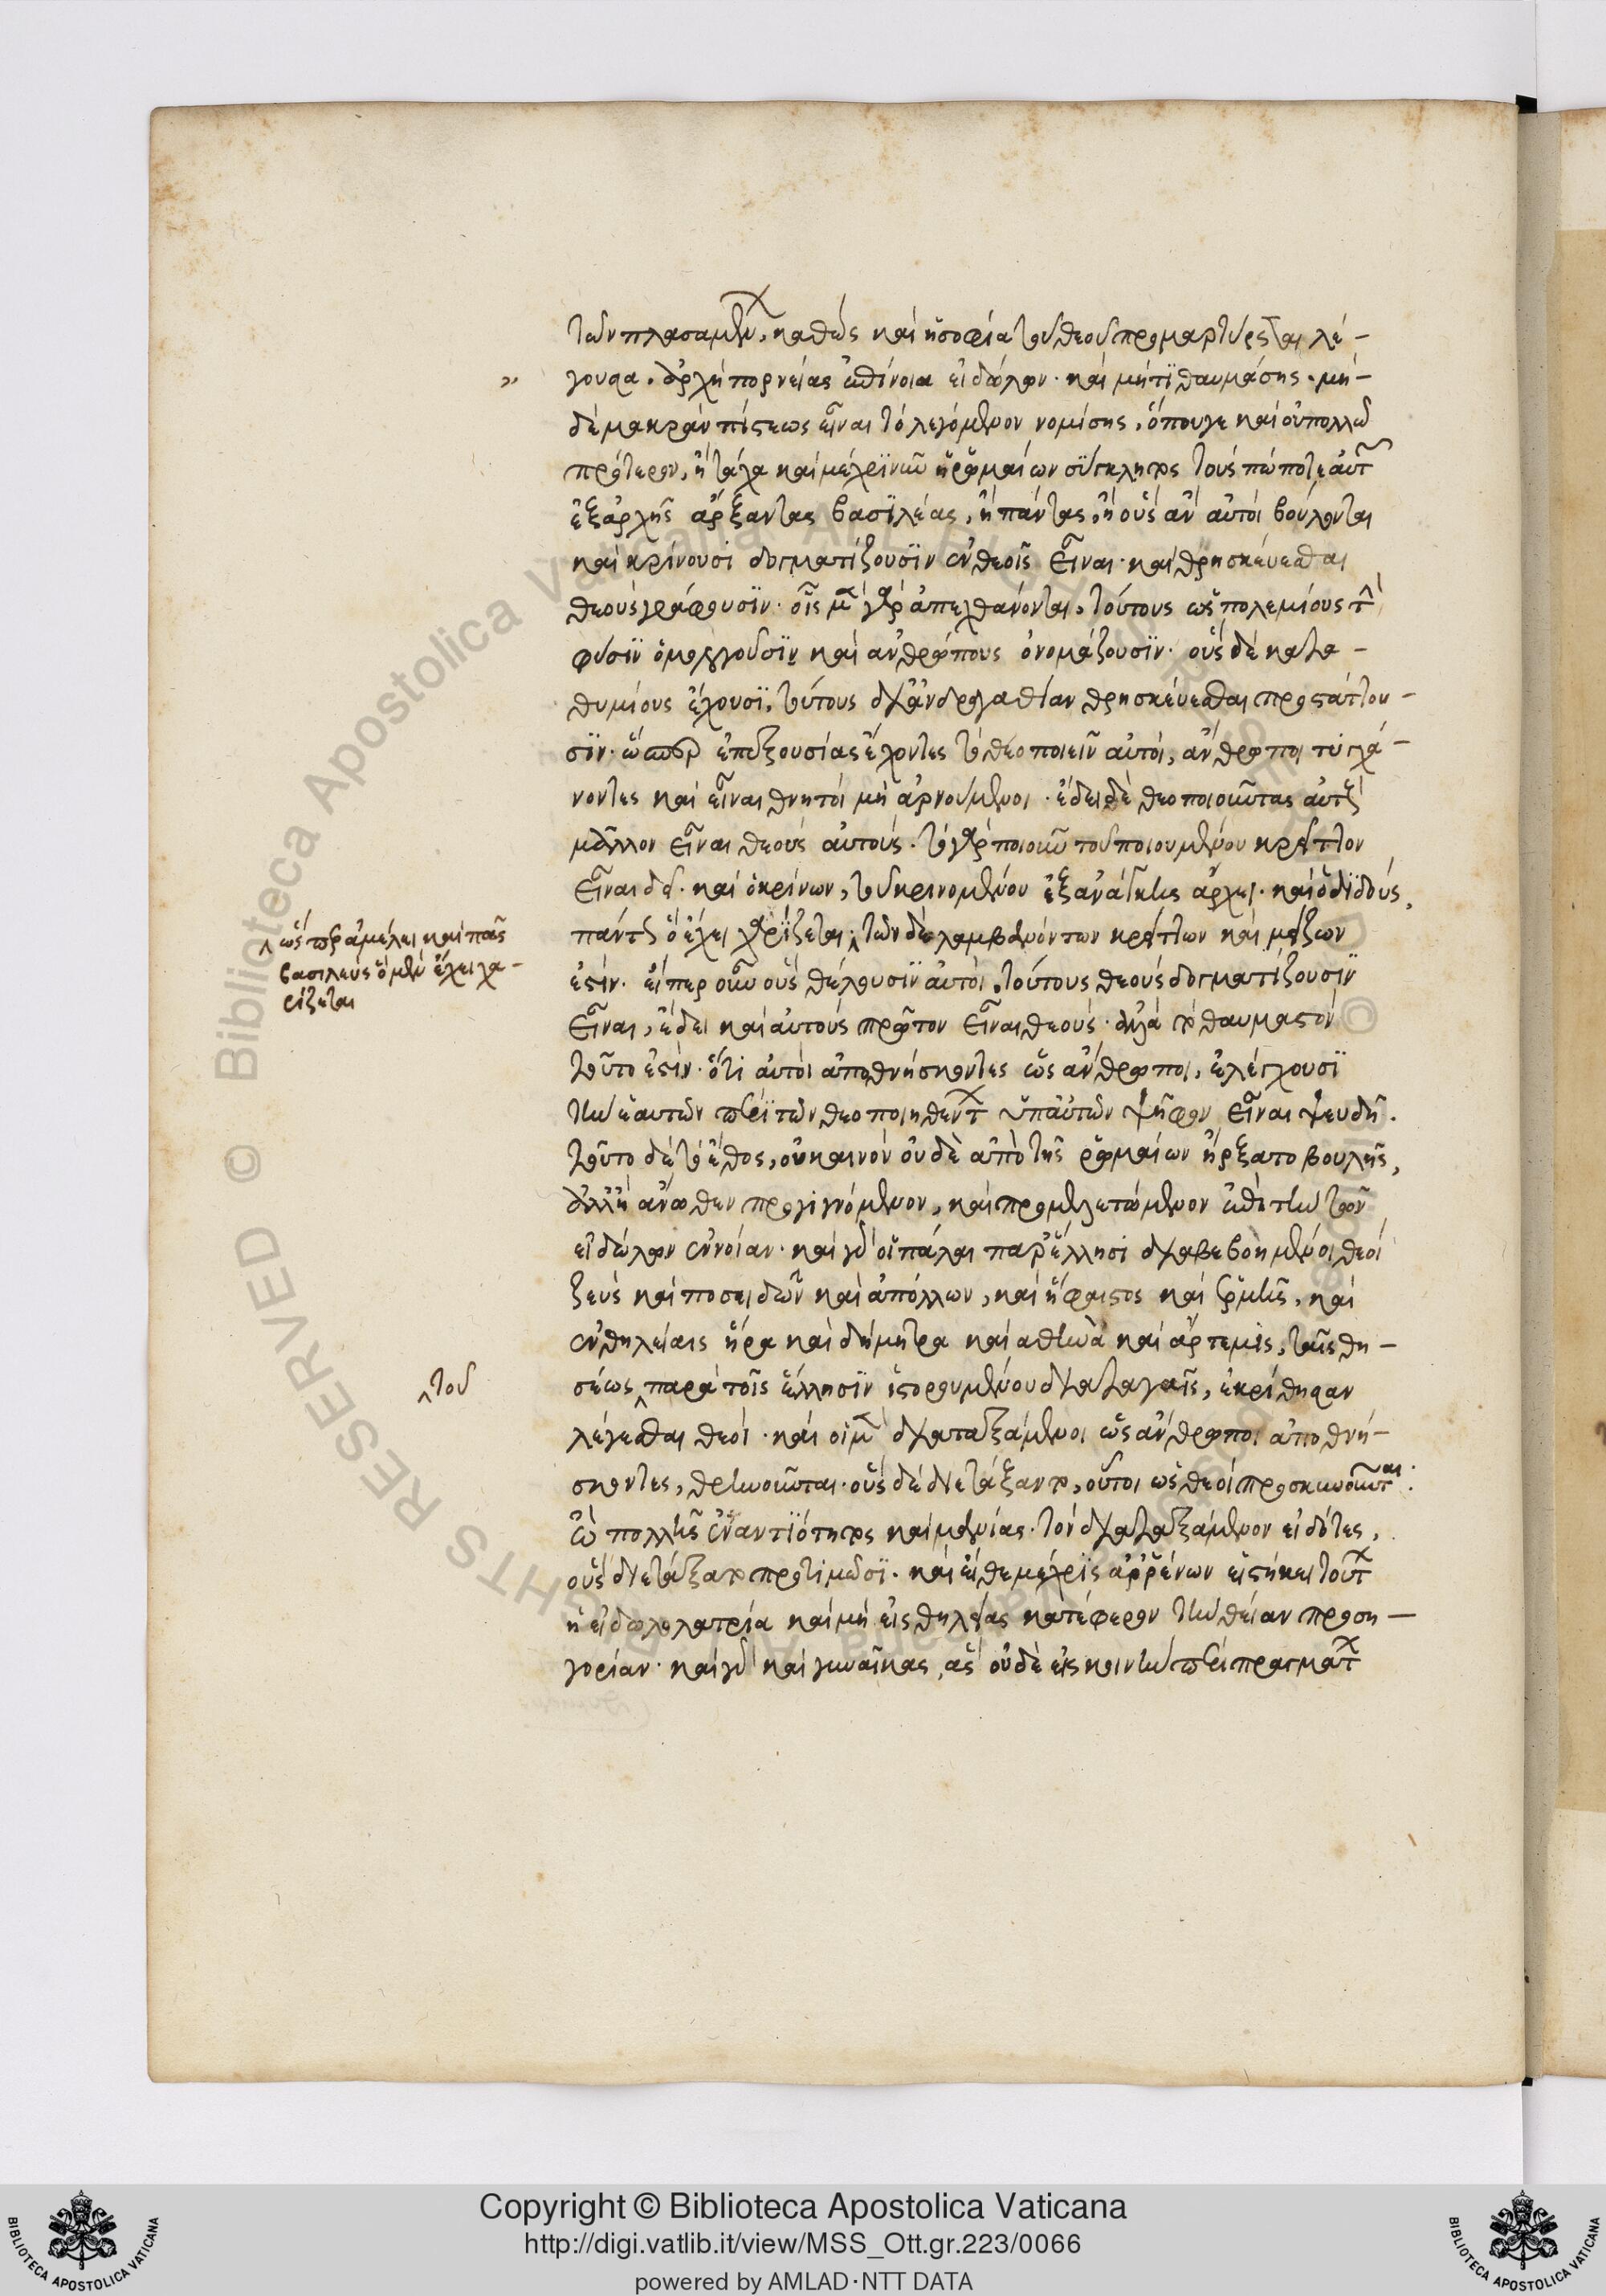 τῶν πλασαμένων, καθὼς καὶ ἡ σοφία τοῦ θεοῦ προμαρτύρεται λέ-
γουσα. ἀρχὴ πορνείας ἐπίνοια εἰδώλων. καὶ μήτι θαυμάσης. μη-
δὲ μακρὰν πίστεως εἶναι τὸ λεγόμενον νομίσης, ὅπουγε καὶ οὐ πολλῶ
πρότερον, ἢ τάχα καὶ μέχρι νῦν ἡ ῥωμαίων σύγκλητος τοὺς πώποτε αὐτῶν
ἐξ ἀρχῆς ἄρξαντας βασιλέας, ἢ πάντας, ἢ οὓς ἂν αὐτοὶ βούλονται
καὶ κρίνουσι δογματίζουσιν ἐν θεοῖς εἶναι. καὶ θρησκεύεσθαι
θεοὺς γράφουσιν. οἷς μὲν γὰρ ἀπεχθάνονται, τούτους ὡς πολεμίους τὴν
φύσιν ὁμολογοῦσιν καὶ ἀνθρώπους ὀνομάζουσιν. οὓς δὲ κατα-
θυμίους ἔχουσι, τούτους δι' ἀνδραγαθίαν θρησκεύεσθαι προστάττου-
σιν. ὥσπερ ἐπ' ἐξουσίας ἔχοντες τὸ θεοποιεῖν αὐτοὶ, ἄνθρωποι τυγχά-
νοντες καὶ εἶναι θνητοὶ μὴ ἀρνούμενοι. ἔδει δὲ θεοποιοῦντας αὐτοὺς
μᾶλλον εἶναι θεοὺς αὐτούς. τὸ γὰρ ποιοῦν τοῦ ποιουμένου κρεῖττον
εἶναι δεῖ. καὶ ὁ κρίνων, τοῦ κρινομένου ἐξ ἀνάγκης ἄρχει. καὶ ὁ διδοὺς,
πάντως ὃ ἔχει χαρίζεται. τῶν δὲ λαμβανόντων κρείττων καὶ μείζων
ἐστίν. εἴπερ οὖν οὓς θέλουσιν αὐτοὶ, τούτους θεοὺς δογματίζουσιν
εἶναι, ἔδει καὶ αὐτοὺς πρῶτον εἶναι θεούς. ἀλλὰ τὸ θαυμαστὸν
τοῦτο ἐστίν. ὅτι αὐτοὶ ἀποθνήσκοντες ὡς ἄνθρωποι, ἐλέγχουσι
τὴν ἑαυτῶν περὶ τῶν θεοποιηθέντων ὑπ' αὐτῶν ψῆφον εἶναι ψευδῆ.
τοῦτο δὲ τὸ ἔθος, οὐ καινὸν οὐδὲ ἀπὸ τῆς ῥωμαίων ἤρξατο βουλῆς,
ἀλλ' ἦν ἄνωθεν προγιγνόμενον, καὶ προμελετώμενον ἐπὶ τὴν τῶν
εἰδώλων ἔννοιαν. καὶ γὰρ οἱ πάλαι παρ' ἕλλησι διαβεβοημένοι θεοὶ
ζεὺς καὶ ποσειδῶν καὶ ἀπόλλων, καὶ ἥφαιστος καὶ ἑρμῆς, καὶ
ἐν θηλείαις ἥρα καὶ δήμητρα καὶ ἀθηνᾶ καὶ ἄρτεμις, ταῖς θη-
σέως παρὰ τοῖς ἕλλησιν ἱστορουμένου διαταγαῖς, ἐκρίθησαν
λέγεσθαι θεοί. καὶ οἱ μὲν διαταξάμενοι ὡς ἄνθρωποι ἀποθνή-
σκοντες, θρηνοῦνται. οὓς δὲ διετάξαντο, οὗτοι ὡς θεοὶ προσκυνοῦνται.
ὢ πολλῆς ἐναντιότητος καὶ μανίας. τὸν διαταξάμενον εἰδότες,
οὓς διετάξατο προτιμῶσι. καὶ εἴθε μέχρις ἀρρένων εἱστήκει τούτων
ἡ εἰδωλολατρία καὶ μὴ εἰς θηλείας κατέφερον τὴν θείαν προση-
γορίαν. καὶ γὰρ καὶ γυναῖκας, ἃς οὐδὲ εἰς κοινὴν περὶ πραγμάτων
ὥσπερ ἀμέλει καὶ πᾶς
βασιλεὺς ὃ μὲν ἔχει χα-
ρίζεται
τοῦ
Copyright © Biblioteca Apostolica Vaticana
http://digi.vatlib.it/view/MSS_Ott.gr.223/0066
powered by AMLAD·NTT DATA
BIBLIOTECA APOSTOLICA VATICANA
BIBLIOTECA APOSTOLICA VATICANA